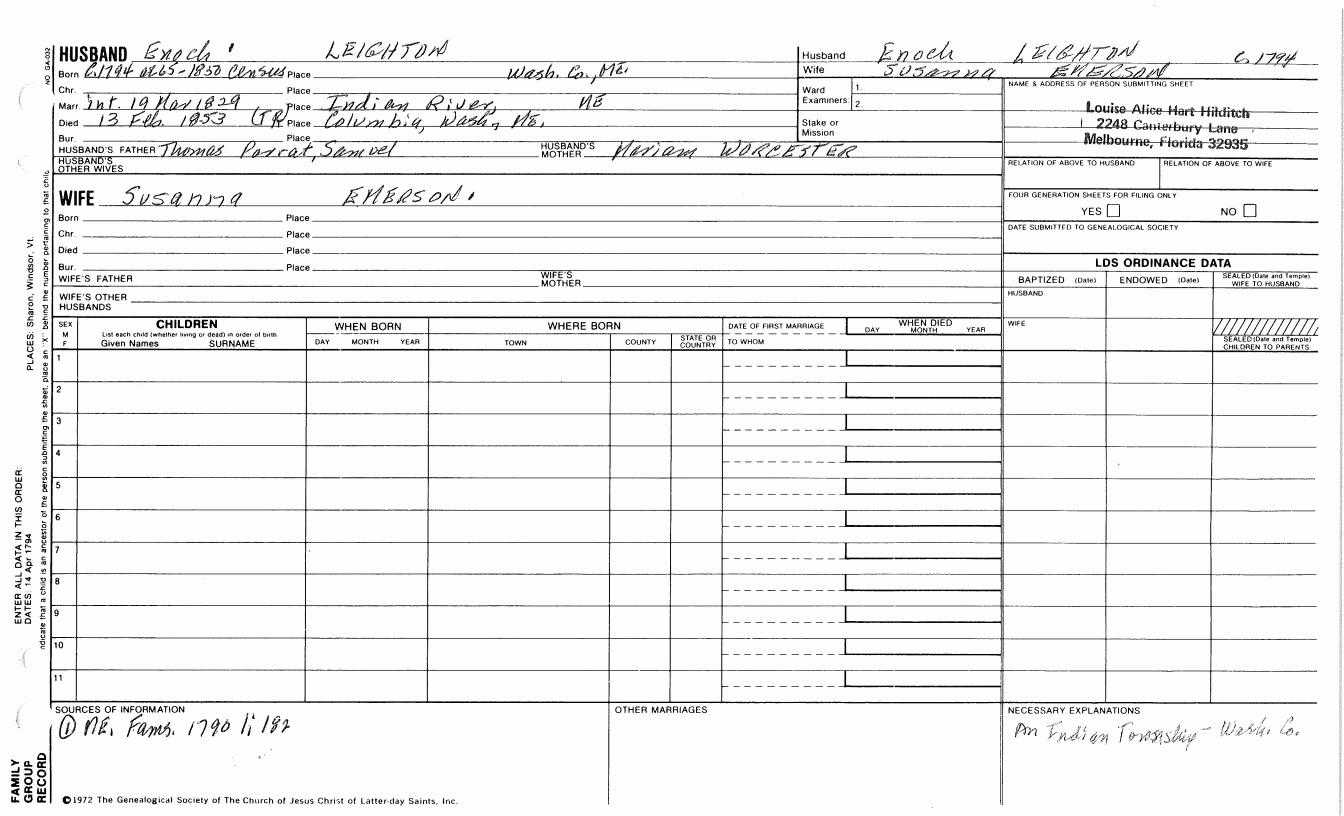 NO. GA-032
HUSBAND Enoch LEIGHTON
Born C.1794 at 65 - 1850 Census Place Wash. Co., ME.
Chr. Place
Marr. int. 19 Mar 1829 Place Indian River, ME
Died 13 Feb. 1853 (TR) Place Columbia, Wash., ME.
Bur. Place
HUSBAND'S FATHER Thomas Parrat, Samuel HUSBAND'S MOTHER Mariam WORCESTER
HUSBAND'S OTHER WIVES
WIFE Susanna EMERSON
Born Place
Chr. Place
Died Place
Bur. Place
WIFE'S FATHER WIFE'S MOTHER
WIFE'S OTHER HUSBANDS
Husband Enoch LEIGHTON C. 1794
Wife Susanna EMERSON
Ward Examiners 1. 2.
Stake or Mission
NAME & ADDRESS OF PERSON SUBMITTING SHEET
Louise Alice Hart Hilditch
2248 Canterbury Lane
Melbourne, Florida 32935
RELATION OF ABOVE TO HUSBAND RELATION OF ABOVE TO WIFE
FOUR GENERATION SHEETS FOR FILING ONLY
YES NO
DATE SUBMITTED TO GENEALOGICAL SOCIETY
LDS ORDINANCE DATA
BAPTIZED (Date) ENDOWED (Date) SEALED (Date and Temple) WIFE TO HUSBAND
HUSBAND
WIFE
SEALED (Date and Temple) CHILDREN TO PARENTS
SEX M F
CHILDREN
List each child (whether living or dead) in order of birth
Given Names SURNAME
WHEN BORN
DAY MONTH YEAR
WHERE BORN
TOWN COUNTY STATE OR COUNTRY
DATE OF FIRST MARRIAGE
TO WHOM
WHEN DIED
DAY MONTH YEAR
1
2
3
4
5
6
7
8
9
10
11
SOURCES OF INFORMATION
① ME. Fams. 1790 1; 182
OTHER MARRIAGES
NECESSARY EXPLANATIONS
An Indian Township - Wash. Co.
©1972 The Genealogical Society of The Church of Jesus Christ of Latter-day Saints, Inc.
FAMILY
GROUP
RECORD
ENTER ALL DATA IN THIS ORDER:
DATES: 14 Apr 1794
PLACES: Sharon, Windsor, Vt.
indicate that a child is an ancestor of the person submitting the sheet, place an "X" behind the number pertaining to that child.